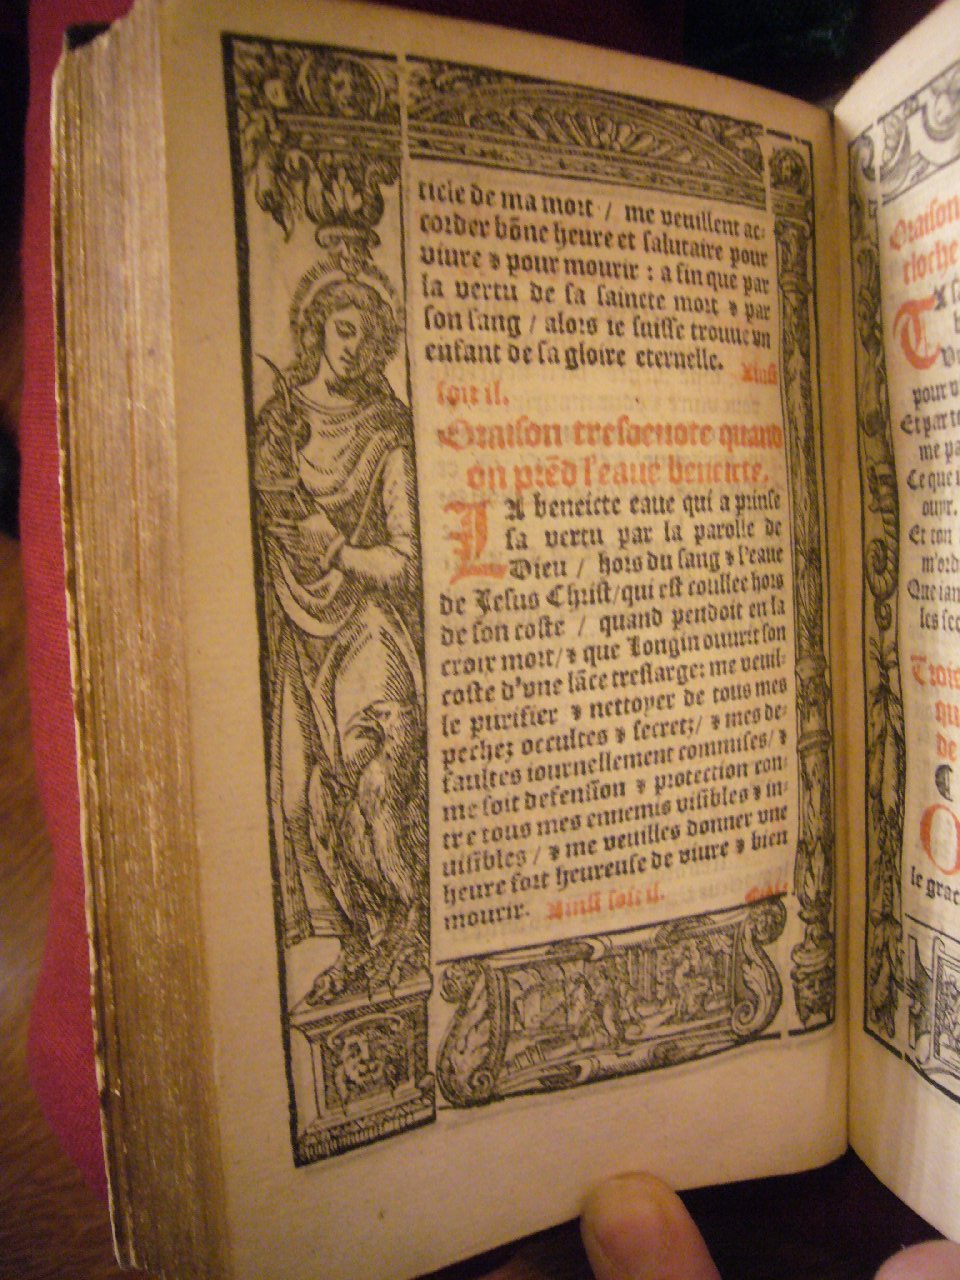 ticle de ma mort / me veuillent ac-
corder bõne heure et salutaire pour
viure & pour mourir : a fin que par
la vertu de sa saincte mort & par
son sang / alors ie fuisse trouue vn
enfant de sa gloire eternelle. Ainsi
soit il.
Oraison tresdeuote quand
on prẽd l'eaue beneicte.
LA beneicte eaue qui a prinse
sa vertu par la parolle de
Dieu / hors du sang & l'eaue
de Jesus Christ/qui est coullee hors
de son coste / quand pendoit en la
croix mort/& que Longin ouurit son
coste d'vne lãce treslarge: me veuil-
le purifier & nettoyer de tous mes
pechez occultes & secretz/ & mes de-
faultes iournellement commises/ &
me soit defension & protection con-
tre tous mes ennemis visibles & in-
uisibles / & me veuilles donner vne
heure fort heureuse de viure & bien
mourir. Ainsi soit il.
Oraison
cloche
pour
Et par
me pa
Ce que
ouur.
Et ton
m'ord
Que ian
les sec
Trois
qu
de
¶
O
le grac